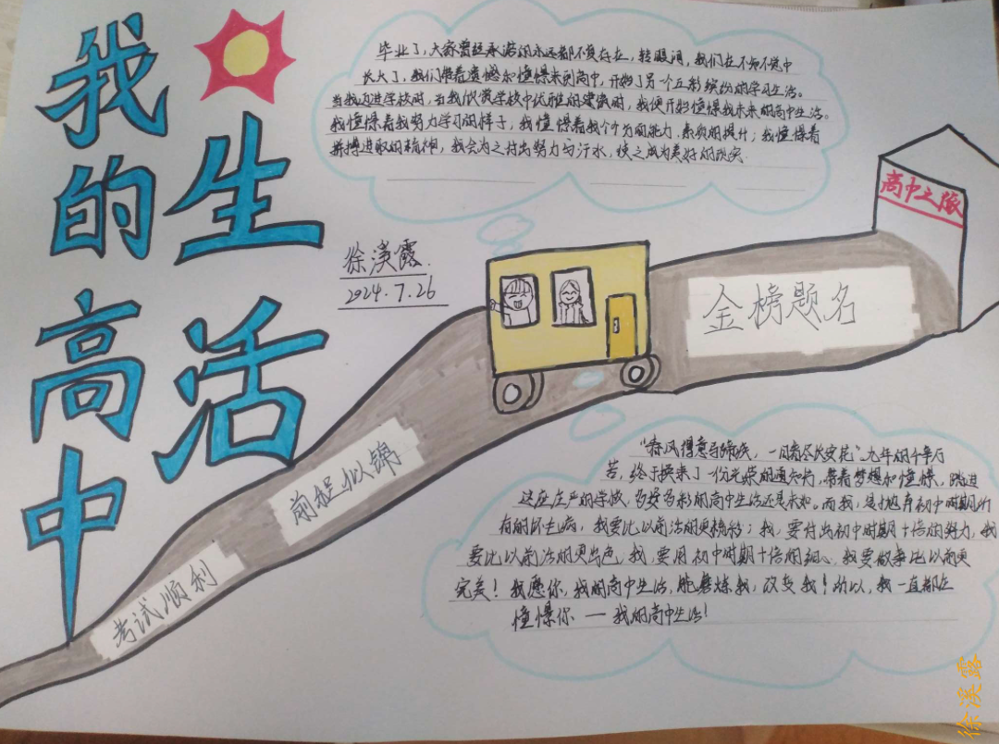 我的高中
生活
毕业了，大家曾经承诺的永远都不复存在，转眼间，我们在不知不觉中
长大了，我们带着遗憾和憧憬来到高中，开始了另一个五彩缤纷的学习生活。
当我迈进学校时，当我欣赏学校中优雅的建筑时，我便开始憧憬我未来的高中生活。
我憧憬着我努力学习的样子，我憧憬着我个方面能力、素质的提升；我憧憬着
拼搏进取的精神，我会为之付出努力与汗水，使之成为美好的现实
徐溪露
2024.7.26
高中之队
金榜题名
前程似锦
考试顺利
"春风得意马蹄疾，一日看尽长安花"九年的个辛万
苦，终于换来了一份光荣的通知书，带着梦想和憧憬，踏进
这座庄严的学府，多姿多彩的高中生活还是未知。而我，是抛弃初中时期所
有的坏毛病，我要比以前活的更精彩；我，要付出初中时期十倍的努力，我
要比以前活的更出色，我，要用初中时期十倍的细心，我要做事比以前更
完美！我愿你，我的高中生活，能磨炼我，改变我！所以，我一直都在
憧憬你——我的高中生活！
徐溪露